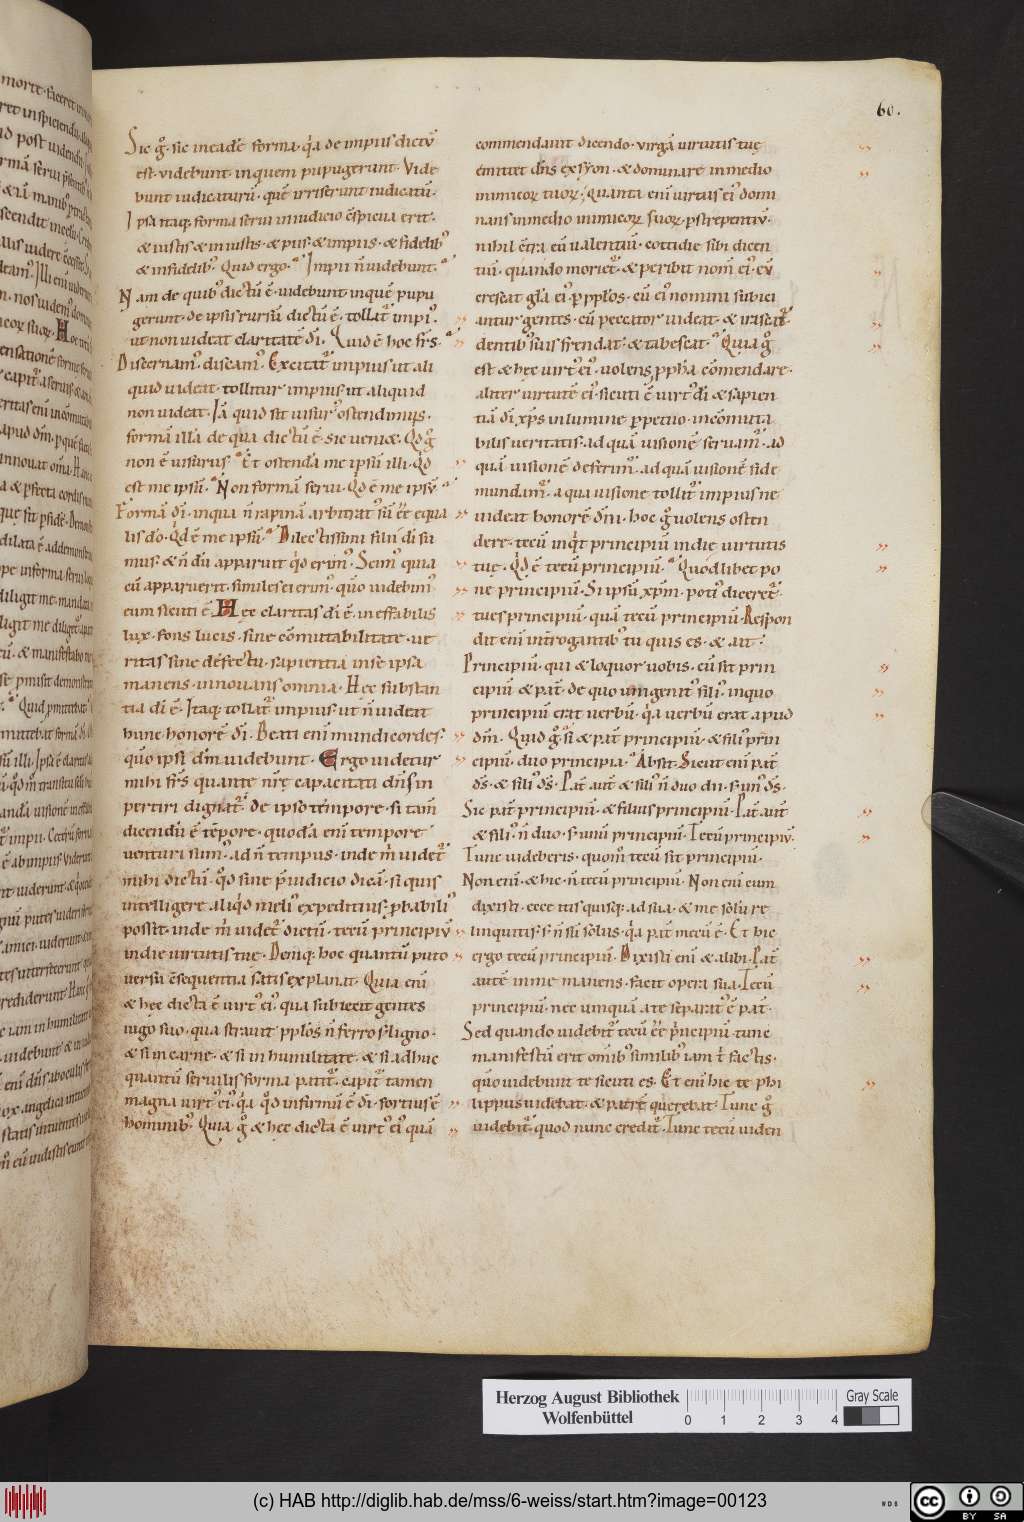 60.
Sic g̊. sic in eadē forma. q̇a de impiis dictū
est. videbunt in quem pupugerunt. Vide
bunt iudicaturū. quē irriserunt iudicatū.
Ipsa itaq; forma serui in iudicio cōspicua erit.
& iustis & iniustis. & piis. & impiis. & fidelib;
& infidelib;. Quid ergo. Impii n̄ videbunt.
Nam de quib; dictū ē. videbunt in quē pupu
gerunt. de ipsis rursū dictū ē. tollat᷑ impi᷒.
ut non videat claritatē dī. Quid ē hoc frs̄.
Discernam᷒. discam᷒. Excitat᷑ impius ut ali
quid videat. tollitur impius. ut aliquid
non videat. Iā quid sit visur᷒ ostendimus.
formā illā de qua dictū ē. sic veniet. Qd̄ g̊
non ē visurus. Et ostendā me ipsū illi. Qd̄
est me ipsū. Non formā serui. Qd̄ ē me ipsū.
Formā dī. in qua n̄ rapinā arbitrat᷒ sū eē equa
lis dō. Qd̄ ē me ipsū. Dilectissimi filii dī su
mus. & n̄ dū apparuit qd̄ erim᷒. Scim᷒ quia
cū apparuerit. similes ei erim᷒. qm̄ videbim᷒
eum sicuti ē. Hęc claritas dī ē. ineffabilis
lux. fons lucis. sine cōmutabilitate. ue
ritas sine defectu. sapientia in se ipsa
manens. innouans omnia. Hec substan
tia dī ē. Itaq; tollat᷑ impius. ut n̄ videat
hunc honorē dī. Beati enī mundicordes.
qm̄ ipsi dm̄ videbunt. Ergo videtur
mihi frs̄ quantę nrę̄ capacitati dn̄s im
pertiri dignat᷑. de ipso tempore. si tam̄
dicendū ē tēpore. quodā enī tempore
venturi sum᷒. ad n̄ tempus. inde m̄ videt᷑
mihi dictū. qd̄ sine p̄iudicio dicā. si quis
intelligere aliqd̄ meli᷒ expeditius. p̱babili᷒
possit. inde m̄ videt᷑ dictū. tecū principiū
in die virtutis tuę. Deniq; hoc quantū puto
versū cōsequentia satis explanat. Quia enī
& hęc dicta ē virt᷒ ei᷒. qua subiecit gentes
iugo suo. qua strauit pp̱los n̄ ferro s; ligno.
& si in carne. & si in humilitate. & si adhuc
quantū seruilis forma patit᷑. capit᷑ tamen
magna virt᷒ ei᷒. q̇a qd̄ infirmū ē dī. fortius ē
hominib;. Quia g̊ & hęc dicta ē virt᷒ ei᷒ quā
commendauit dicendo. virgā virtutis tuę
emittet dn̄s ex syon. & dominare in medio
inimicoꝝ tuoꝝ. Quanta enī virtus ei᷒ domi
nans in medio inimicoꝝ suoꝝ. p̱strepentiū.
nihil c̄tra eū valentiū. cottidie sibi dicen
tiū. quando moriet᷑. & peribit nom̄ ei᷒. cū
crescat glā ei᷒ p̱ pp̱los. cū ei᷒ nomini subici
antur gentes. cū peccator videat. & irascat᷑.
dentib᷒ suis frendat. & tabescat. Quia g̊
est & hęc virt᷒ ei᷒. volens p̱pha cōmendare.
aliter virtutē ei᷒. sicuti ē virt᷒ dī & sapien
tiā dī xp̄s in lumine p̱petuo. incōmuta
bilis veritatis. ad quā visionē seruam᷒. ad
quā visionē deferim᷒. ad quā visionē fide
mundam᷑. a qua visione tollit᷑ impius ne
videat honorē dn̄i. hoc g̊ volens osten
dere. tecū inq̇t principiū in die virtutis
tuę. Qd̄ ē tecū principiū. Quodlibet po
ne principiū. Si ipsū xp̄m. poti᷒ diceret᷑.
tu es principiū. quā tecū principiū. Respon
dit enī int̄rogantib᷒ tu quis es. & ait.
Principiū. qui & loquor vobis. cū sit prin
cipiū & pat̄. de quo unigenit᷒ fili᷒. in quo
principiū erat verbū. q̇a verbū erat apud
dm̄. Quid g̊ si & pat̄ principiū. & fili᷒ prin
cipiū. duo principia. Absit. Sicut enī pat̄
ds̄. & fili᷒ ds̄. Pat̄ aut̄ & fili᷒ n̄ duo dii. s; un᷒ ds̄.
Sic pat̄ principiū. & filius principiū. Pat̄ aut̄
& fili᷒. n̄ duo. s; unū principiū. Tecū principiū.
Tunc videberis. quom̄ tecū sit principiū.
Non enī. & hic. n̄ tecū principiū. Non enī eum
dixisti. ecce itis quisq; ad sua. & me solū re
linquitis. s; n̄ sū solus. q̇a pat̄ mecū ē. Et hic
ergo tecū principiū. Dixisti enī & alibi. Pat̄
autē in me manens. facit opera sua. Tecū
principiū. nec umquā a te separat᷒ ē pat̄.
Sed quando videbit᷑ tecū eē p̄ncipiū. tunc
manifestū erit omib᷒ similib᷒ iam t̄ factis.
qm̄ videbunt te sicuti es. Et enī hic te phi
lippus videbat. & patrē querebat. Tunc g̊
videbit᷑. quod nunc credit᷑. Tunc tecū viden
Herzog August Bibliothek
Wolfenbüttel
0 1 2 3 4
Gray Scale
(c) HAB http://diglib.hab.de/mss/6-weiss/start.htm?image=00123
WDB
cc
BY SA